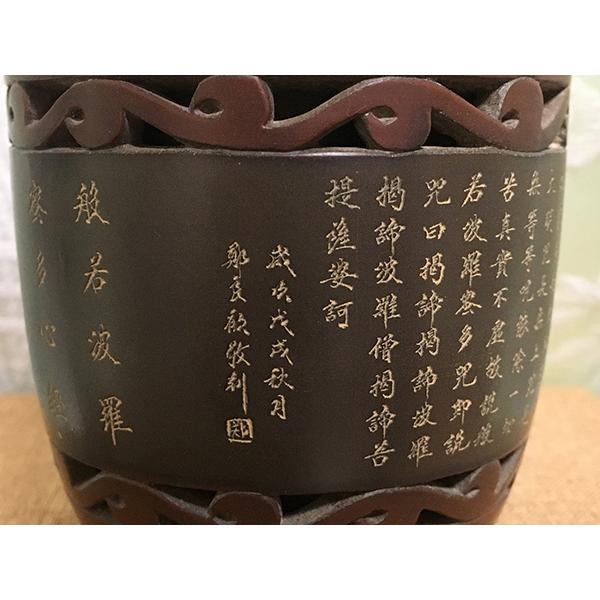 大明咒是無上咒是
無等等咒能除一切
苦真實不虛故說般
若波羅蜜多咒即說
咒曰揭諦揭諦波羅
揭諦波羅僧揭諦菩
提薩婆訶
歲次戊戌秋月
鄭良願敬刻
鄭
般若波羅
蜜多心經